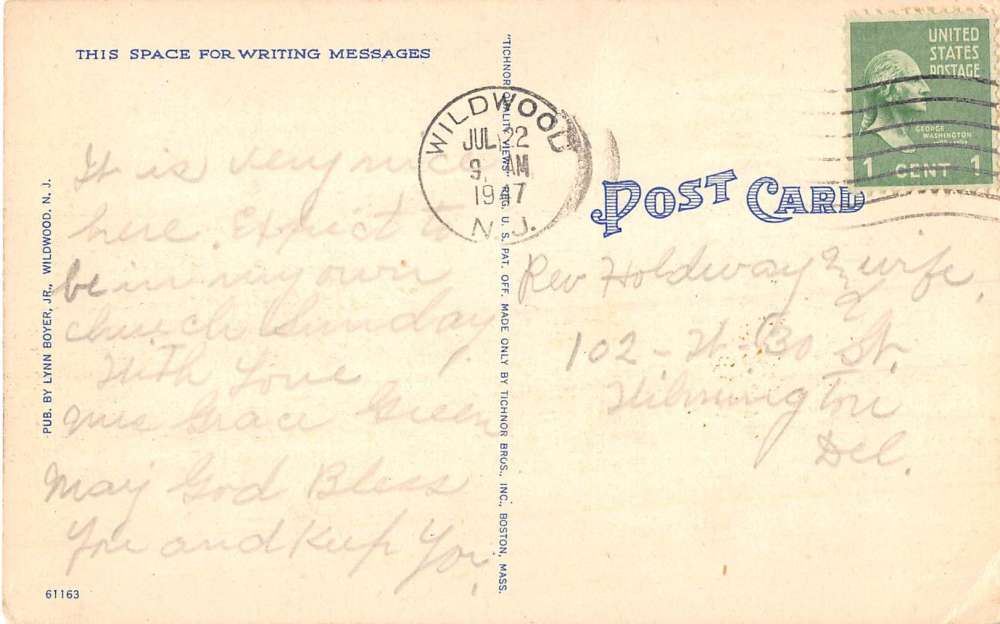 THIS SPACE FOR WRITING MESSAGES
It is very nice
here. Expect to
be in my own
church Sunday
With Love
Mrs Grace Green
May God Bless
You and Keep You.
PUB. BY LYNN BOYER, JR., WILDWOOD, N. J.
61163
"TICHNOR QUALITY VIEWS" REG. U. S. PAT. OFF. MADE ONLY BY TICHNOR BROS., INC., BOSTON, MASS.
WILDWOOD
JUL 22
9 AM
1947
N.J.
UNITED
STATES
POSTAGE
GEORGE
WASHINGTON
1 CENT 1
POST CARD
Rev Holdway & wife,
102 - St.
Wilmington
Del.